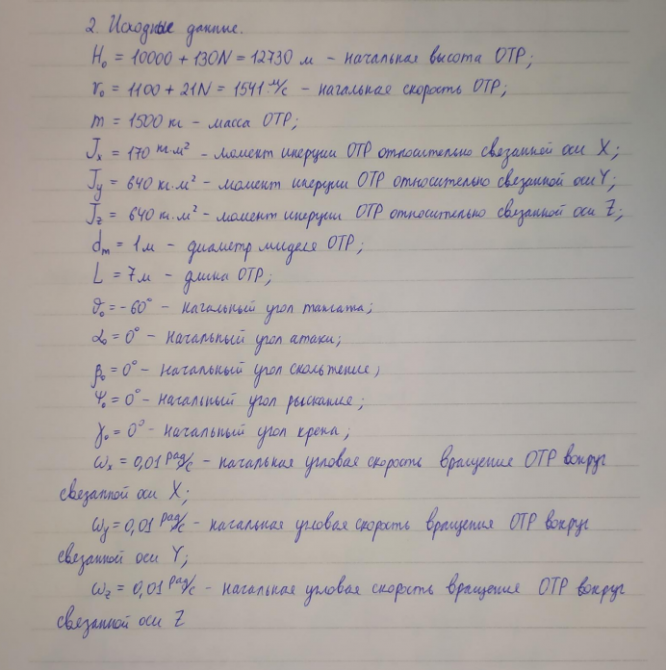 2. Исходные данные.
H₀ = 10000 + 130N = 12730 м - начальная высота ОТР;
v₀ = 1100 + 21N = 1541 м/с - начальная скорость ОТР;
m = 1500 кг - масса ОТР;
Jx = 170 кг·м² - момент инерции ОТР относительно связанной оси X;
Jy = 640 кг·м² - момент инерции ОТР относительно связанной оси Y;
Jz = 640 кг·м² - момент инерции ОТР относительно связанной оси Z;
dm = 1 м - диаметр миделя ОТР;
L = 7 м - длина ОТР;
ϑ₀ = -60° - начальный угол тангажа;
α₀ = 0° - начальный угол атаки;
β₀ = 0° - начальный угол скольжения;
ψ₀ = 0° - начальный угол рыскания;
γ₀ = 0° - начальный угол крена;
ωx = 0,01 рад/с - начальная угловая скорость вращения ОТР вокруг
связанной оси X;
ωy = 0,01 рад/с - начальная угловая скорость вращения ОТР вокруг
связанной оси Y;
ωz = 0,01 рад/с - начальная угловая скорость вращения ОТР вокруг
связанной оси Z